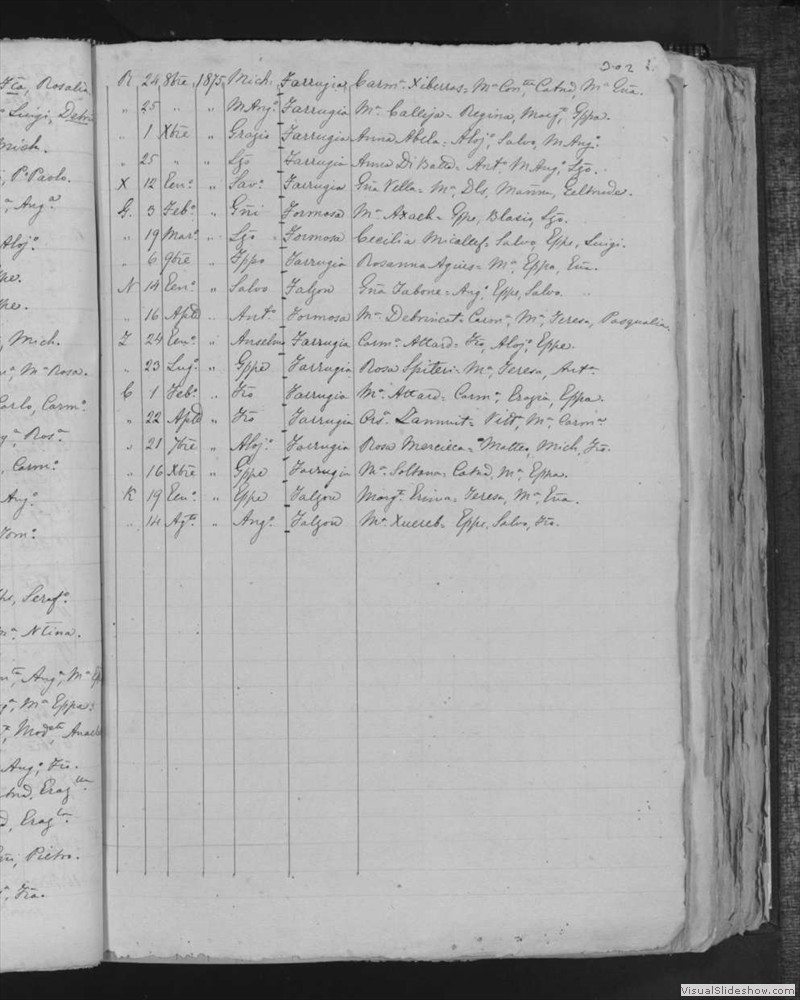 Fca, Rosalia
Luigi, Debra
Mich.
Pº Paolo.
Angª
Aloj.º
pe.
pe.
Mich.
Mª Rosa.
Carlo, Carmº
Rosª
Carmº
Angº
Tomº
pe, Serafº
Mª Ntina.
Angª, Mª
Mª Eppa
Modta
Angº, Fro.
Eragta
Eragta
Pietro.
Fra.
302
R 24 8bre 1875 Mich. Farrugia Carmª Xiberras = Mª Conta, Catnd, Mª Gña.
" 25 " " M Angº Farrugia Mª Calleja = Regina, Margta, Gppa.
" 1 Xbre " Grazio Farrugia Anna Abela = Aloj.º, Salvo, M Angº
" 25 " " Lgo Farrugia Anna Di Batta = Antº, M Angº, Lgo.
X 12 Genº " Savº Farrugia Gña Vella = Mª, Dls, Geltrude.
G. 3 Febº " Gñi Formosa Mª Axiach = Gppe, Blasio, Lgo.
" 19 Marº " Lgo Formosa Cecilia Micallef = Salvo, Gppe, Luigi.
" 6 9bre " Fppo Farrugia Rosanna Agius = Mª, Gppa, Gña.
N 14 Genº " Salvo Falzon Gña Tabone = Angº, Gppe, Salvo.
" 16 Aple " Antº Formosa Mª Debrincat = Carmª, Mª, Teresa, Pasqualina
Z 24 Genº " Anselmo Farrugia Carmª Attard = Fro, Aloj.º, Gppe.
" 23 Lugº " Gppe Farrugia Rosa Spiteri = Mª, Teresa, Antª
C 1 Febº " Fro Farrugia Mª Attard = Carmª, Grazia, Gppa.
" 22 Aple " Fro Farrugia Orsª Zammit = Vittª, Mª, Carmª
" 21 7bre " Aloj.º Farrugia Rosa Mercieca = Matteo, Mich, Fro.
" 16 Xbre " Gppe Farrugia Mª Soltana = Catnd, Mª, Gppa.
K 19 Genº " Gppe Falzon Margta = Teresa, Mª, Gña.
" 14 Agto " Angº Falzon Mª Xuereb = Gppe, Salvo, Fro.
VisualSlideshow.com